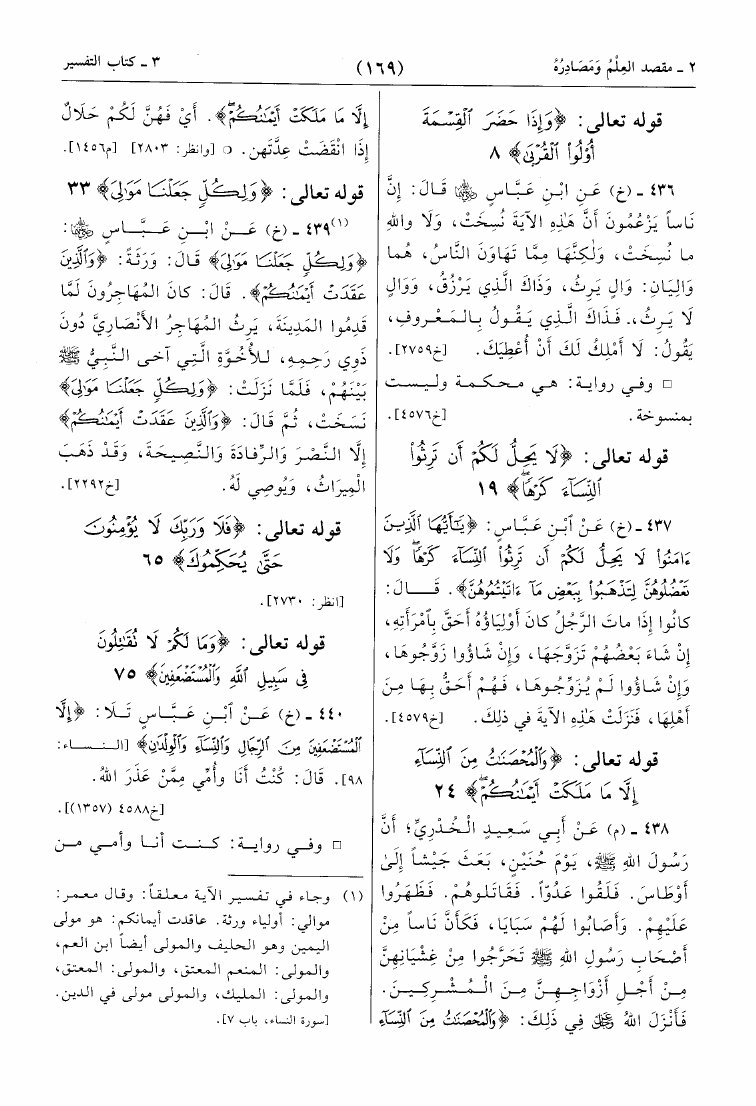 ٢ ـ مقصد العِلْمُ وَمَصَادِرُهُ
(١٦٩)
٣ ـ كتاب التفسير
قوله تعالى: ﴿وَإِذَا حَضَرَ ٱلْقِسْمَةَ
أُوْلُواْ ٱلْقُرْبَىٰ﴾ ٨
٤٣٦ ـ (خ) عَنِ ابْنِ عَبَّاسٍ ﵄ قَالَ: إِنَّ
نَاساً يَزْعُمُونَ أَنَّ هَذِهِ الآيَةَ نُسِخَتْ، وَلَا وَاللهِ
ما نُسِخَتْ، وَلَكِنَّهَا مِمَّا تَهَاوَنَ النَّاسُ، هُمَا
وَالِيَانِ: وَالٍ يَرِثُ، وَذَاكَ الَّذِي يَرْزُقُ، وَوَالٍ
لَا يَرِثُ، فَذَاكَ الَّذِي يَقُولُ بِالمَعْرُوفِ،
يَقُولُ: لَا أَمْلِكُ لَكَ أَنْ أُعْطِيَكَ. [خ٢٧٥٩].
□ وفي رواية: هي محكمة وليست
بمنسوخة. [خ٤٥٧٦].
قوله تعالى: ﴿لَا يَحِلُّ لَكُمْ أَن تَرِثُواْ
ٱلنِّسَآءَ كَرْهًاۖ﴾ ١٩
٤٣٧ ـ (خ) عَنْ ٱبْنِ عَبَّاسٍ: ﴿يَٰٓأَيُّهَا ٱلَّذِينَ
ءَامَنُواْ لَا يَحِلُّ لَكُمْ أَن تَرِثُواْ ٱلنِّسَآءَ كَرْهًاۖ وَلَا
تَعْضُلُوهُنَّ لِتَذْهَبُواْ بِبَعْضِ مَآ ءَاتَيْتُمُوهُنَّ﴾. قَالَ:
كانُوا إِذَا ماتَ الرَّجُلُ كانَ أَوْلِيَاؤُهُ أَحَقَّ بِٱمْرَأَتِهِ،
إِنْ شَاءَ بَعْضُهُمْ تَزَوَّجَهَا، وَإِنْ شَاؤُوا زَوَّجُوهَا،
وَإِنْ شَاؤُوا لَمْ يُزَوِّجُوهَا، فَهُمْ أَحَقُّ بِهَا مِنَ
أَهْلِهَا، فَنَزَلَتْ هَذِهِ الآيَةُ في ذلِكَ. [خ٤٥٧٩].
قوله تعالى: ﴿وَٱلْمُحْصَنَٰتُ مِنَ ٱلنِّسَآءِ
إِلَّا مَا مَلَكَتْ أَيْمَٰنُكُمْۖ﴾ ٢٤
٤٣٨ ـ (م) عَنْ أَبِي سَعِيدٍ الْخُدْرِيِّ؛ أَنَّ
رَسُولَ اللهِ ﷺ، يَوْمَ حُنَيْنٍ، بَعَثَ جَيْشاً إِلَى
أَوْطَاسَ. فَلَقُوا عَدُوّاً. فَقَاتَلُوهُمْ. فَظَهَرُوا
عَلَيْهِمْ. وَأَصَابُوا لَهُمْ سَبَايَا، فَكَأَنَّ نَاساً مِنْ
أَصْحَابِ رَسُولِ اللهِ ﷺ تَحَرَّجُوا مِنْ غِشْيَانِهِنَّ
مِنْ أَجْلِ أَزْوَاجِهِنَّ مِنَ الْمُشْرِكِينَ.
فَأَنْزَلَ اللهُ ﷿ فِي ذَلِكَ: ﴿وَٱلْمُحْصَنَٰتُ مِنَ ٱلنِّسَآءِ
إِلَّا مَا مَلَكَتْ أَيْمَٰنُكُمْۖ﴾. أَيْ فَهُنَّ لَكُمْ حَلَالٌ
إِذَا انْقَضَتْ عِدَّتُهن. ○ [وانظر: ٢٨٠٣] [م١٤٥٦].
قوله تعالى: ﴿وَلِكُلٍّ جَعَلْنَا مَوَٰلِىَ﴾ ٣٣
٤٣٩(١) ـ (خ) عَنْ ابْنِ عَبَّاسٍ ﵄:
﴿وَلِكُلٍّ جَعَلْنَا مَوَٰلِىَ﴾ قَالَ: وَرَثَةً: ﴿وَٱلَّذِينَ
عَقَدَتْ أَيْمَٰنُكُمْ﴾. قَالَ: كانَ المُهَاجِرُونَ لَمَّا
قَدِمُوا المَدِينَةَ، يَرِثُ المُهَاجِرُ الأَنْصَارِيَّ دُونَ
ذَوِي رَحِمِهِ، لِلأُخُوَّةِ الَّتِي آخى النَّبِيُّ ﷺ
بَيْنَهُمْ، فَلَمَّا نَزَلَتْ: ﴿وَلِكُلٍّ جَعَلْنَا مَوَٰلِىَ﴾
نَسَخَتْ، ثُمَّ قَالَ: ﴿وَٱلَّذِينَ عَقَدَتْ أَيْمَٰنُكُمْ﴾
إِلَّا النَّصْرَ وَالرِّفادَةَ وَالنَّصِيحَةَ، وَقَدْ ذَهَبَ
الْمِيرَاثُ، وَيُوصِي لَهُ. [خ٢٢٩٢].
قوله تعالى: ﴿فَلَا وَرَبِّكَ لَا يُؤْمِنُونَ
حَتَّىٰ يُحَكِّمُوكَ﴾ ٦٥
[انظر: ٢٧٣٠].
قوله تعالى: ﴿وَمَا لَكُمْ لَا تُقَٰتِلُونَ
فِى سَبِيلِ ٱللَّهِ وَٱلْمُسْتَضْعَفِينَ﴾ ٧٥
٤٤٠ ـ (خ) عَنْ ٱبْنِ عَبَّاسٍ تَلَا: ﴿إِلَّا
ٱلْمُسْتَضْعَفِينَ مِنَ ٱلرِّجَالِ وَٱلنِّسَآءِ وَٱلْوِلْدَٰنِ﴾ [النساء:
٩٨]. قَالَ: كُنْتُ أَنَا وَأُمِّي مِمَّنْ عَذَرَ اللهُ.
[خ٤٥٨٨ (١٣٥٧)].
□ وفي رواية: كنت أنا وأمي من
(١) وجاء في تفسير الآية معلقاً: وقال معمر:
موالي: أولياء ورثة. عاقدت أيمانكم: هو مولى
اليمين وهو الحليف والمولى أيضاً ابن العم،
والمولى: المنعم المعتق، والمولى: المعتق،
والمولى: المليك، والمولى مولى في الدين.
[سورة النساء، باب ٧].